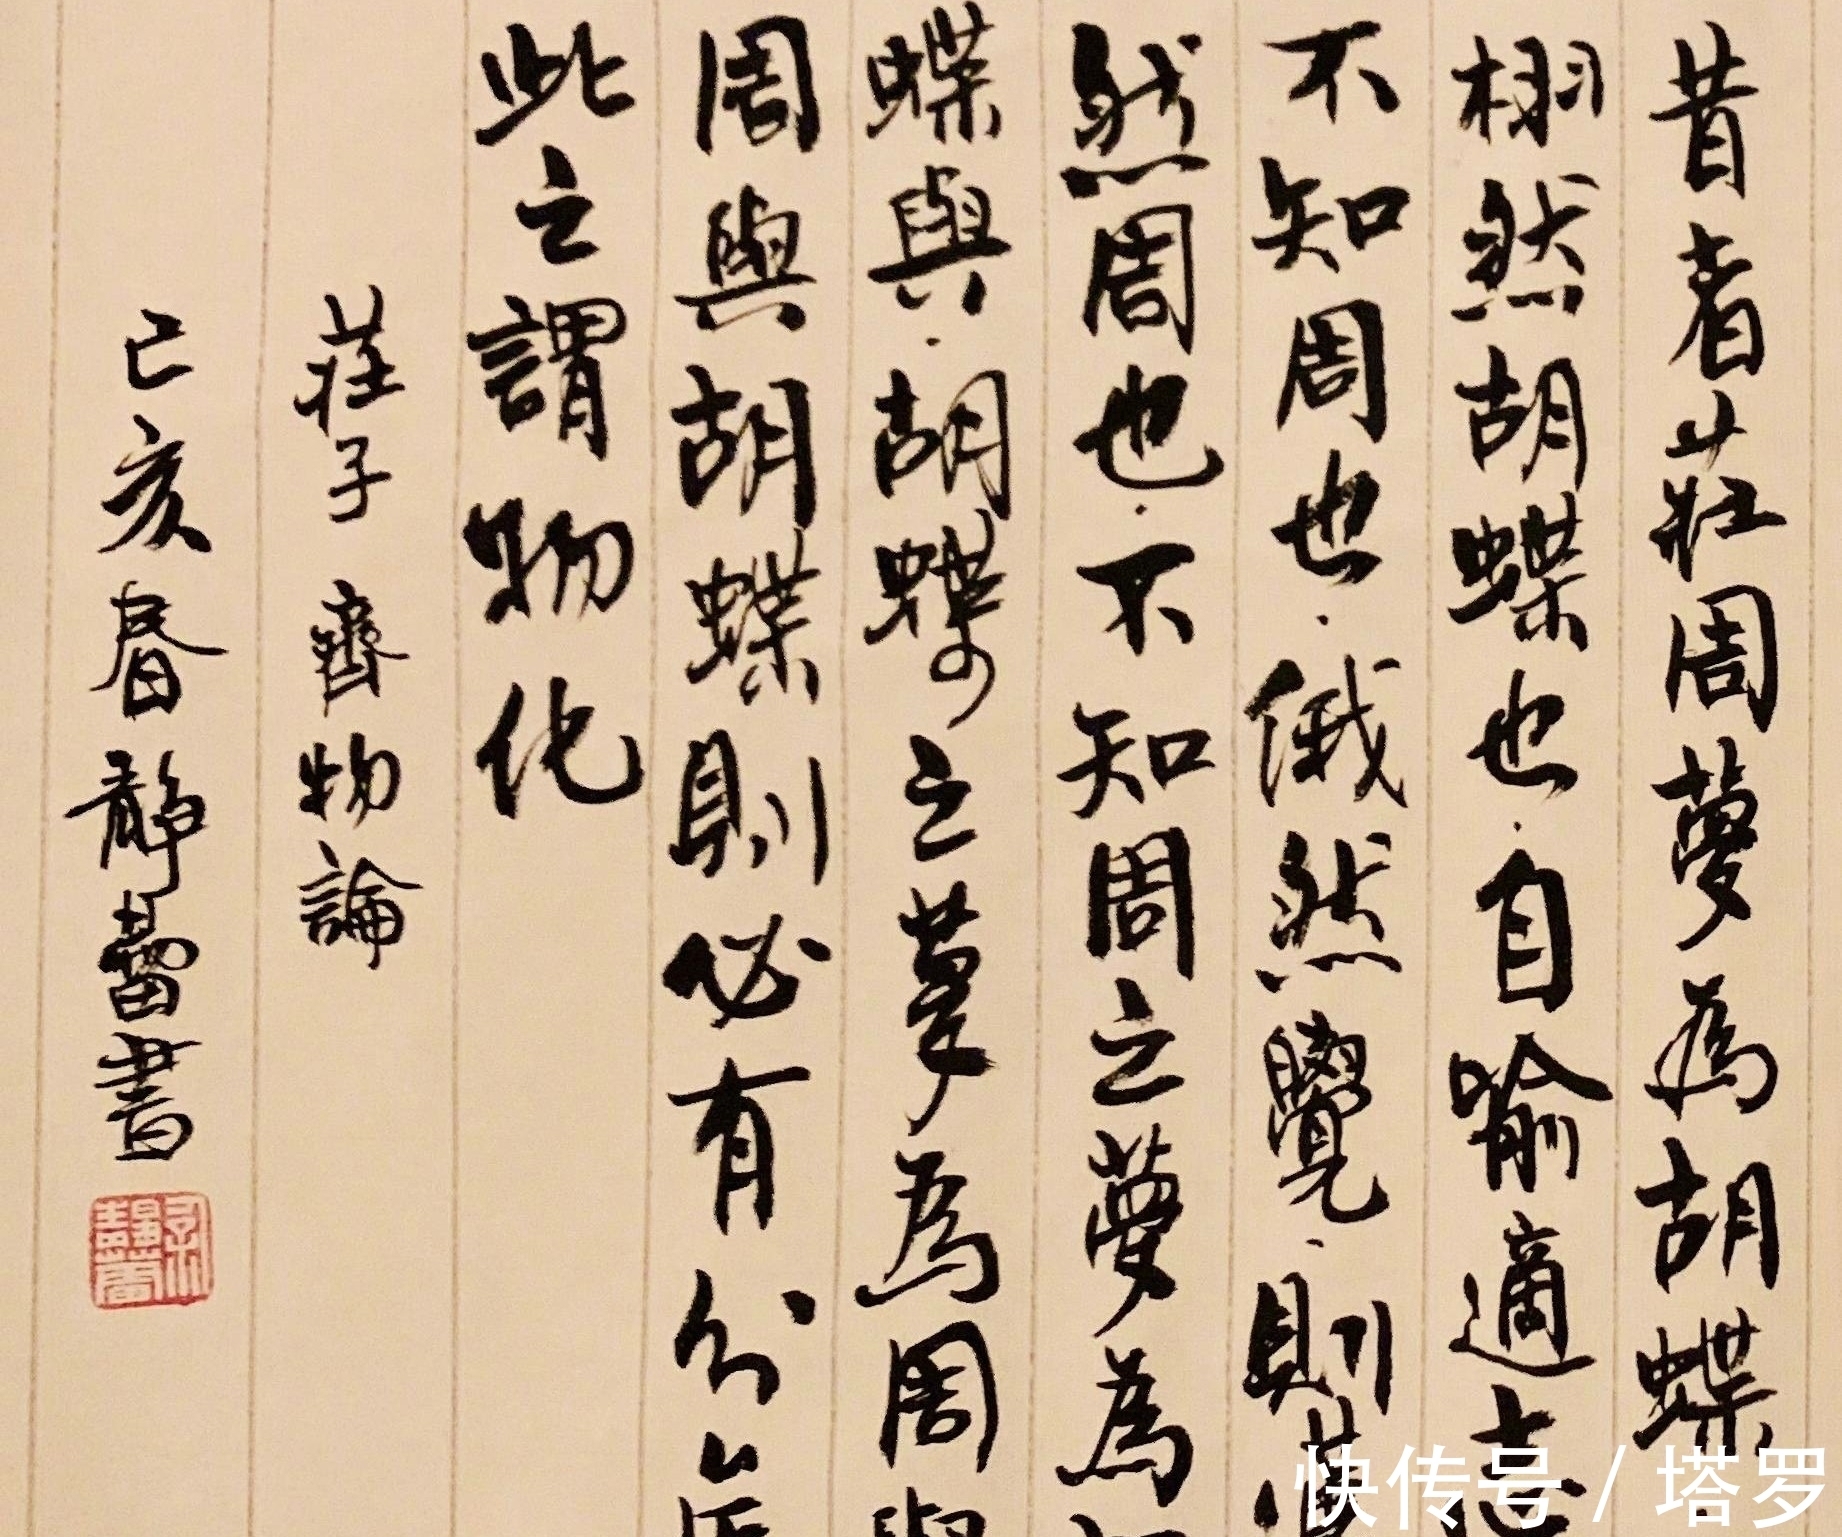 昔者莊周夢為胡蝶
栩然胡蝶也·自喻適志
不知周也·俄然覺·則蘧
然周也·不知周之夢為
蝶與·胡蝶之夢為周與
周與胡蝶則必有分矣
此之謂物化
莊子 齊物論
己亥春靜蕾書
快传号 / 塔罗